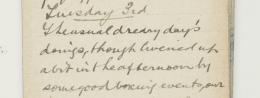 Tuesday 3rd
The usual dreary day's
doings, though livened up
a bit in the afternoon by
some good boxing events, our